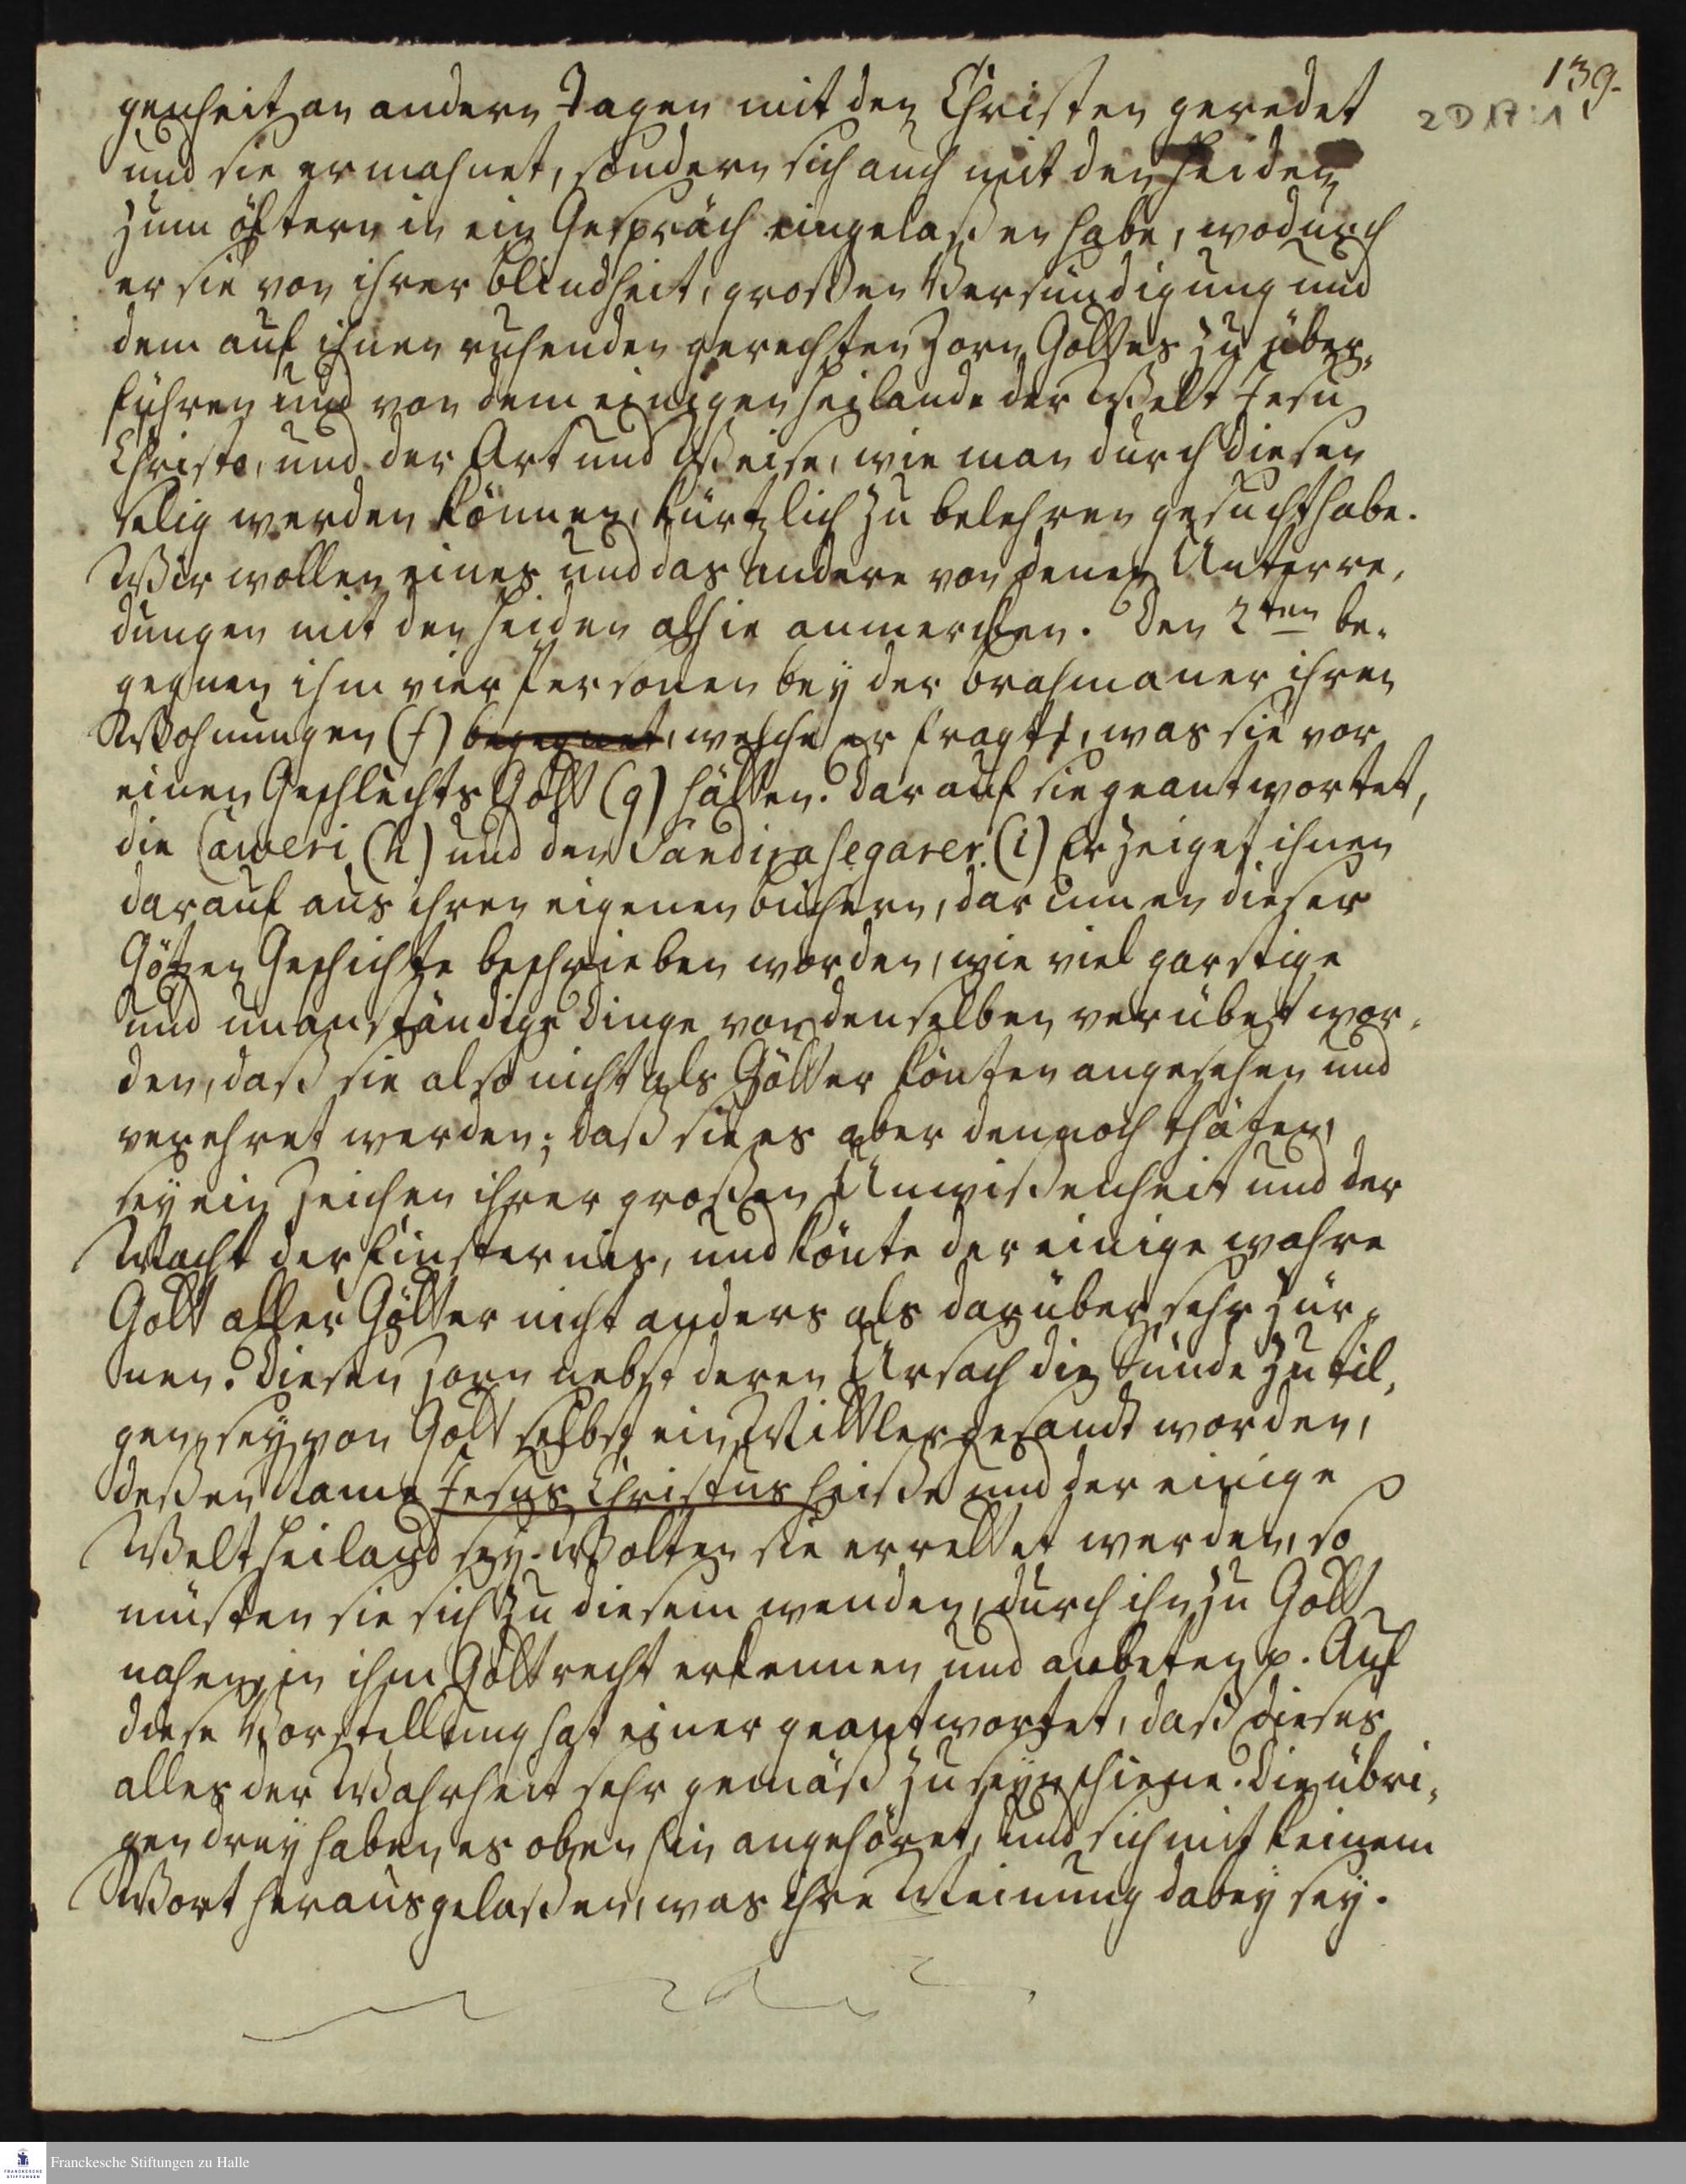 139.
2 D 17:1
genheit an andern Tagen mit den Christen geredet
und sie ermahnet, sondern sich auch mit den Heiden
zum öftern in ein Gespräch eingelaßen habe, wodurch
er sie von ihrer Blindheit, großen Versündigung und
dem auf ihnen ruhenden gerechten Zorn Gottes zu über-
führen und von dem einigen Heilande der Welt Jesu
Christo, und der Art und Weise, wie man durch diesen
selig werden können, kürtzlich zu belehren gesucht habe.
Wir wollen eines und das andere von denen Unterre-
dungen mit den Heiden alhie anmercken. Den 2ten be-
gegnen ihm vier Personen bey der Brahmaner ihren
Wohnungen (f) begegnet, welche er fragte, was sie vor
einen Geschlechts Gott (g) hätten. Darauf sie geantwortet,
die Caweri (h) und den Sandirasegarer. (i) Er zeiget ihnen
darauf aus ihren eigenen Büchern, darinnen dieser
Götzen Geschichte beschrieben worden, wie viel garstige
und unanständige Dinge von denselben verübet wor-
den, daß sie also nicht als Götter könten angesehen und
verehret werden; daß sie es aber dennoch thäten,
sey ein Zeichen ihrer großen Unwißenheit und der
Macht der Finsternis, und könte der einige wahre
Gott aller Götter nicht anders als darüber sehr zür-
nen. Diesen Zorn nebst deren Ursach die Sünde zu til-
gen, sey von Gott selbst ein Mittler gesandt worden,
deßen Name Jesus Christus heiße und der einige
Welt Heiland sey. Wolten sie errettet werden, so
müsten sie sich zu diesem wenden, durch ihn zu Gott
nahen, in ihm Gott recht erkennen und anbeten p. Auf
diese Vorstellung hat einer geantwortet, daß dieses
alles der Wahrheit sehr gemäß zu seyn schiene. Die übri-
gen drey haben es oben hin angehöret, und sich mit keinem
Wort herausgelaßen, was ihre Meinung dabey sey.
FRANCKESCHE STIFTUNGEN
Franckesche Stiftungen zu Halle